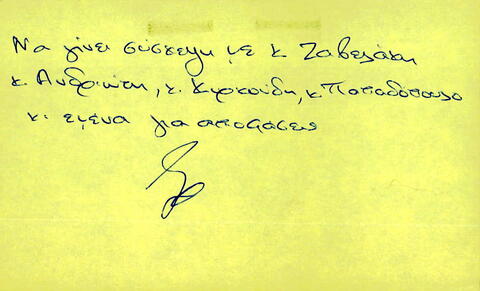 Να γίνει σύσκεψη με κ. Ζαβελάκη
κ. Ανδριώτη, κ. Κιρκούδη, κ. Παπαδόπουλο
κ. εμένα για αποφάσεις